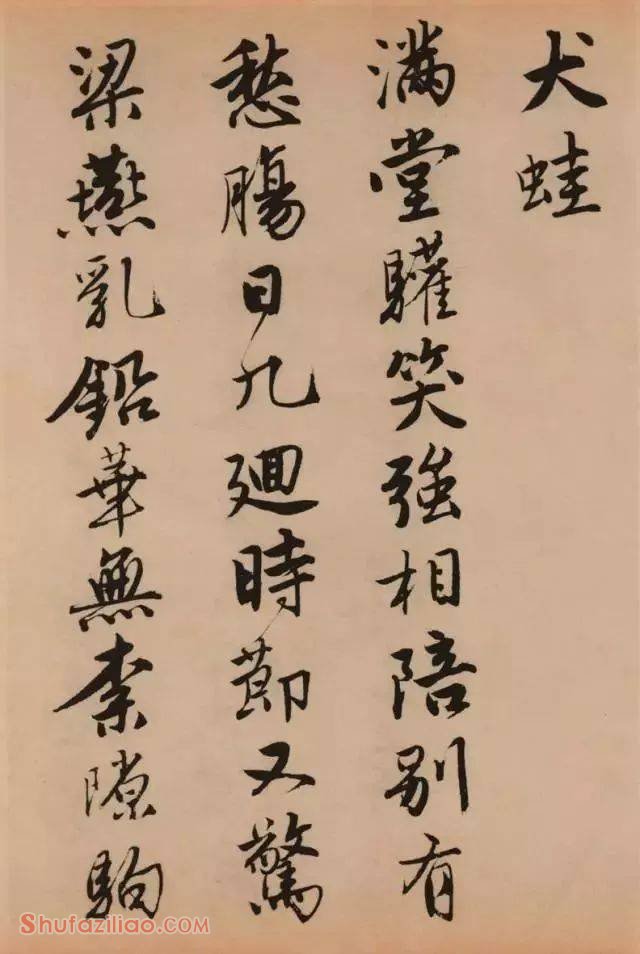 犬蛙
滿堂驩笑強相陪別有
愁腸日九廻時節又驚
梁燕乳鉛華無柰隙駒
Shufaziliao.com